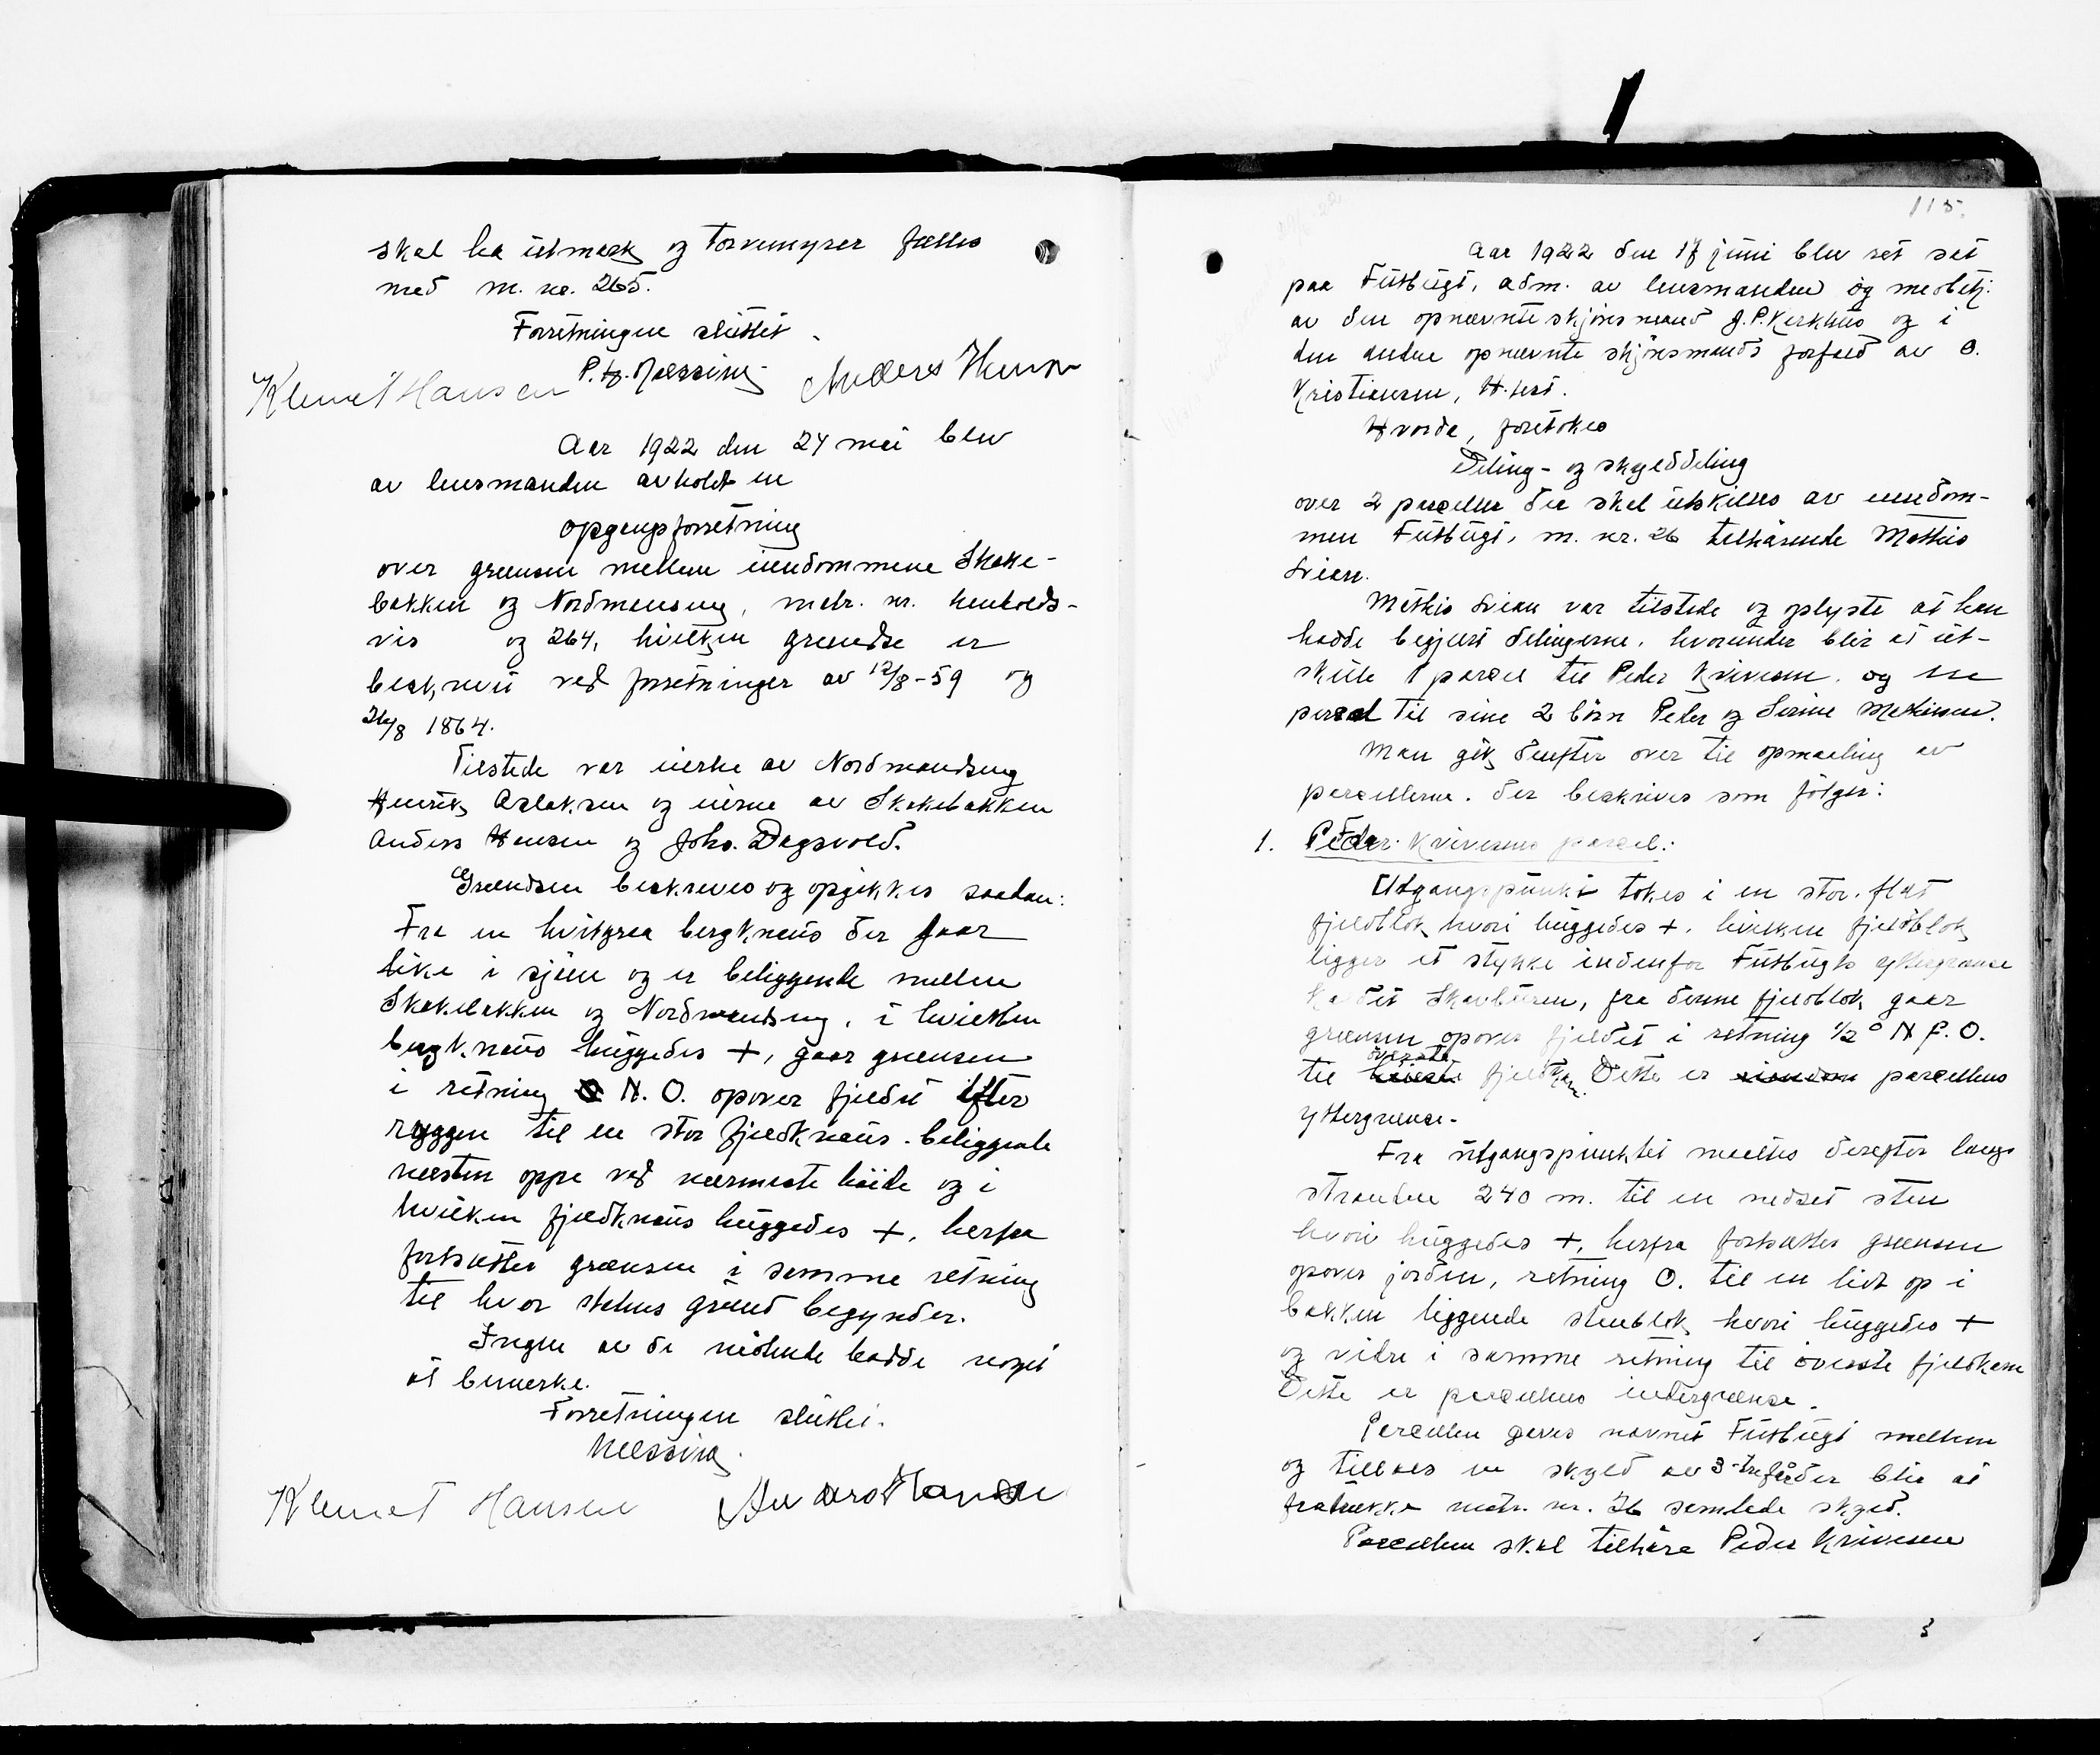 skal ha utmark og torvemyrer fælles
med m. nr. 265.
Forretningen sluttet.
P. H. Mæssing
Klemet Hansen Anders Hansen
Aar 1922 den 24 mai blev
av lensmanden avholdt en
opgangsforretning
over grænsen mellem eiendommene Skake-
bakken og Nordmanseng, matr. nr. henholds-
vis og 264, hvilken grændse er
beskrevet ved forretninger av 12/8-59 og
26/8 1864.
Tilstede var eierne av Nordmandseng
Henrik Aslaksen og eierne av Skakebakken
Anders Hansen og Johs. Dagsvold.
Grændsen beskreves og opgikkes saadan:
Fra en hvitgraa bergknaus der gaar
like i sjøen og er beliggende mellem
Skakebakken og Nordmandseng, i hvilken
bergknaus huggedes +, gaar grænsen
i retning N.O. opover fjeldet efter
ryggen til en stor fjeldknaus beliggende
næsten oppe ved nærmeste høide og i
hvilken fjeldknaus huggedes +, herfra
fortsætter grænsen i samme retning
til hvor statens grund begynder.
Ingen av de mødende hadde noget
at bemerke.
Forretningen sluttet.
Mæssing.
Klemet Hansen Anders Hansen
115.
Aar 1922 den 17 juni blev ret sat
paa Futbugt, adm. av lensmanden og medbetj.
av den opnævnte skjønsmand J.P. Kerkhus og i
den anden opnævnte skjønsmands forfald av O.
Kristiansen, H.fest.
Hvorda, foretokes
Deling- og skylddeling
over 2 parceller der skal utskilles av eiendom-
men Futbugt, m. nr. 26 tilhørende Mathis
Svian.
Mathis Svian var tilstede og oplyste at han
hadde begjært delingerne, hvorunder blir at ut-
skille 1 parcel til Peder Krivesen, og en
parcel til sine 2 børn Peder og Serine Mathisen.
Man gik derefter over til opmaaling av
parcellerne. der beskrives som følger:
1. Peder Krivesens parcel:
Utgangspunkt tokes i en stor, flat
fjeldblok hvori huggedes +, hvilken fjeldblok
ligger et stykke indenfor Futbugts yttergrænse
kaldet Skarvburen, fra denne fjeldblok gaar
grænsen opover fjeldet i retning 1/2° N f. O.
til øverste fjeldkam. Dette er parcellens
yttergrænse.
Fra utgangspunktet maaltes derefter langs
stranden 240 m. til en nedsat sten
hvori huggedes +, herfra fortsætter grænsen
opover jorden, retning O. til en lidt op i
bakken liggende stenblok hvori huggedes +
og videre i samme retning til øverste fjeldkam
Dette er parcellens indergrænse.
Parcellen gaves navnet Futbugt mellem
og tillaes en skyld av 3 - tre øre der blir at
fratrække matr. nr. 26 samlede skyld.
Parcellen skal tilhøre Peder Krivesen